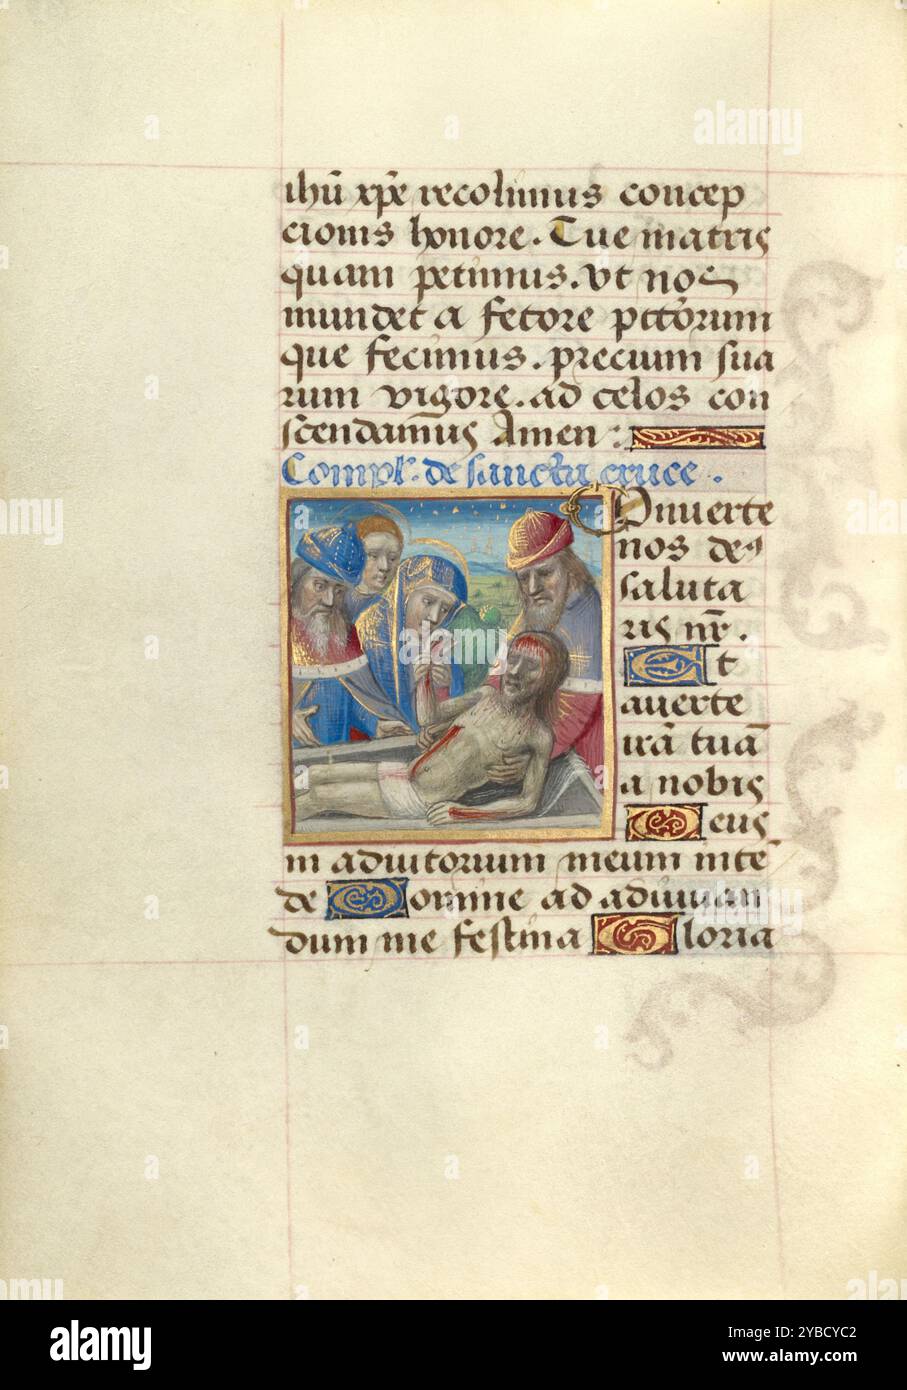 ihū xp̄e recolimus concep
cionis honore. Tue matris
quam petimus. Ut nos
mundet a fetore pctōrum
que fecimus. precium sua
rum vigore. ad celos con
scendam̄us Amen :
Compl'. de sancta cruce.
Onuerte
nos deus
saluta
ris nr̄.
Et
auerte
irā tuā
a nobis
Deus
in adiutorium meum intē
de Domine ad adiuuan
dum me festina Gloria
alamy
Image ID: 2YBCYC2
www.alamy.com